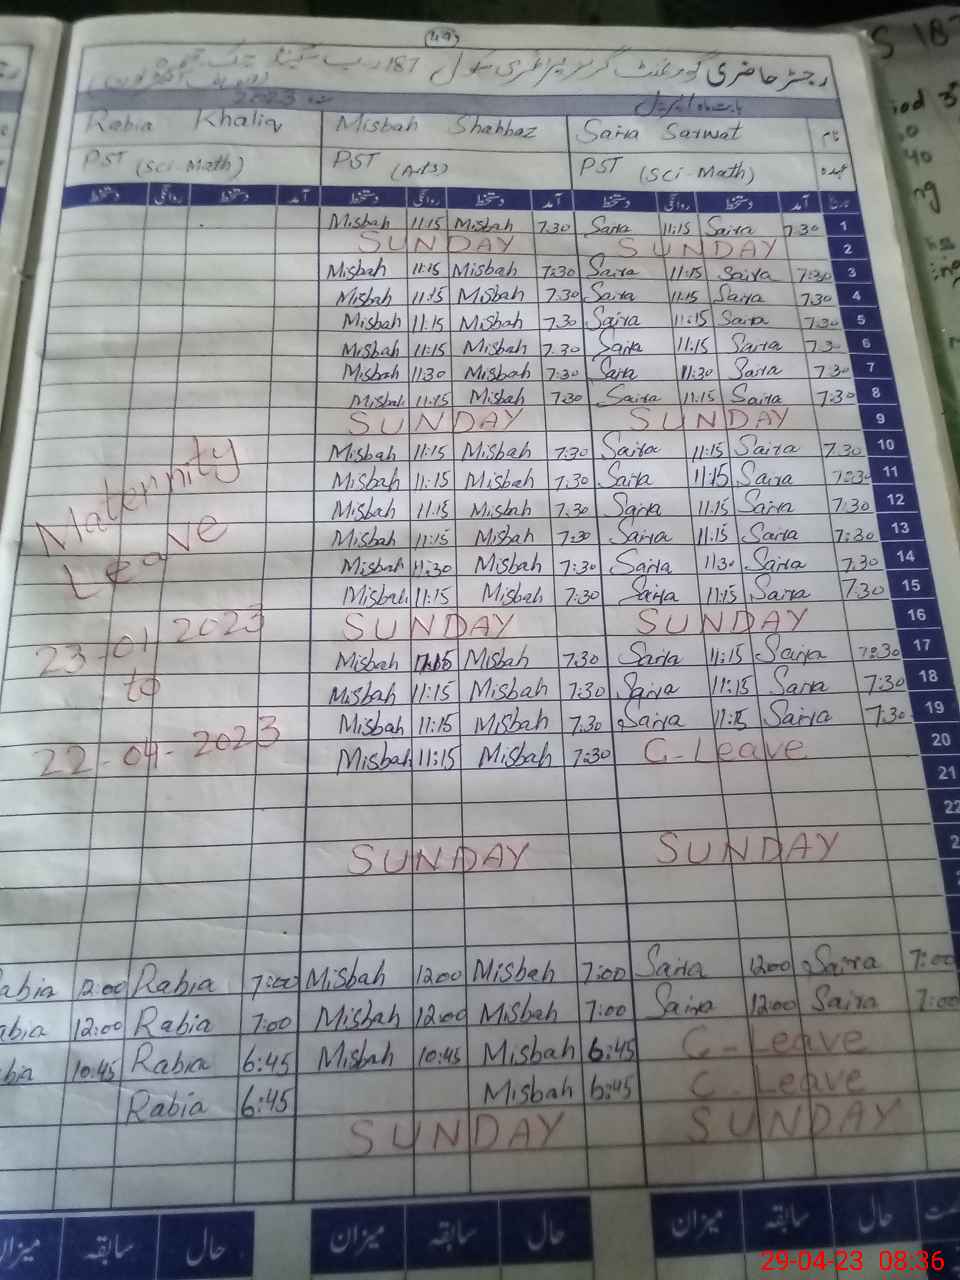 49
رجسٹر حاضری گورنمنٹ گرلز پرائمری سکول 187 رب
بابت ماہ اپریل سنہ 2023
Rabia Khaliq Misbah Shahbaz Saira Sarwat نام
PST (Sci-Math) PST (Arts) PST (Sci-Math) عہدہ
دستخط روانگی دستخط آمد دستخط روانگی دستخط آمد دستخط روانگی دستخط آمد تاریخ
Misbah 11:15 Misbah 7:30 Saira 11:15 Saira 7:30 1
SUNDAY SUNDAY 2
Misbah 11:15 Misbah 7:30 Saira 11:15 Saira 7:30 3
Misbah 11:15 Misbah 7:30 Saira 11:15 Saira 7:30 4
Misbah 11:15 Misbah 7:30 Saira 11:15 Saira 7:30 5
Misbah 11:15 Misbah 7:30 Saira 11:15 Saira 7:3 6
Misbah 11:30 Misbah 7:30 Saira 11:30 Saira 7:30 7
Misbah 11:15 Misbah 7:30 Saira 11:15 Saira 7:30 8
SUNDAY SUNDAY 9
Misbah 11:15 Misbah 7:30 Saira 11:15 Saira 7:30 10
Misbah 11:15 Misbah 7:30 Saira 11:15 Saira 7:30 11
Maternity Misbah 11:15 Misbah 7:30 Saira 11:15 Saira 7:30 12
Misbah 11:15 Misbah 7:30 Saira 11:15 Saira 7:30 13
Leave Misbah 11:30 Misbah 7:30 Saira 11:30 Saira 7:30 14
Misbah 11:15 Misbah 7:30 Saira 11:15 Saira 7:30 15
23-01-2023 SUNDAY SUNDAY 16
Misbah 11:15 Misbah 7:30 Saira 11:15 Saira 7:30 17
to Misbah 11:15 Misbah 7:30 Saira 11:15 Saira 7:30 18
Misbah 11:15 Misbah 7:30 Saira 11:15 Saira 7:30 19
22-04-2023 Misbah 11:15 Misbah 7:30 C-Leave 20
21
22
SUNDAY SUNDAY 2
abia 12:00 Rabia 7:00 Misbah 12:00 Misbah 7:00 Saira 12:00 Saira 7:00
abia 12:00 Rabia 7:00 Misbah 12:00 Misbah 7:00 Saira 12:00 Saira 7:00
bia 10:45 Rabia 6:45 Misbah 10:45 Misbah 6:45 C-Leave
Rabia 6:45 Misbah 6:45 C-Leave
SUNDAY SUNDAY
میزان سابقہ حال میزان سابقہ حال میزان سابقہ حال
29-04-23 08:36